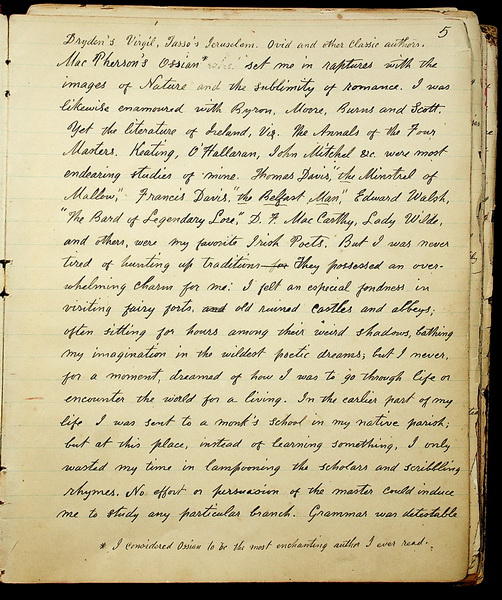 5
Dryden's Virgil, Tasso's Jerusalem. Ovid and other Classic authors.
Mac Pherson's Ossian* set me in raptures with the
images of Nature and the sublimity of romance. I was
likewise enamoured with Byron, Moore, Burns and Scott.
Yet the literature of Ireland, Viz. The Annals of the Four
Masters. Keating, O'Hallaran, John Mitchel &c. were most
endearing studies of mine. Thomas Davis, "the Minstrel of
Mallow," Francis Davis, "the Belfast Man," Edward Walsh,
"The Bard of Legendary Lore," D. F. MacCarthy, Lady Wilde,
and others, were my favorite Irish Poets. But I was never
tired of hunting up traditions for They possessed an over-
whelming charm for me: I felt an especial fondness in
visiting fairy forts, and old ruined castles and abbeys;
often sitting for hours among their weird shadows, bathing
my imagination in the wildest poetic dreams; but I never,
for a moment, dreamed of how I was to go through life or
encounter the world for a living. In the earlier part of my
life I was sent to a monk's school in my native parish;
but at this place, instead of learning something, I only
wasted my time in lampooning the scholars and scribbling
rhymes. No effort or persuasion of the master could induce
me to study any particular branch. Grammar was detestable
* I considered Ossian to be the most enchanting author I ever read.